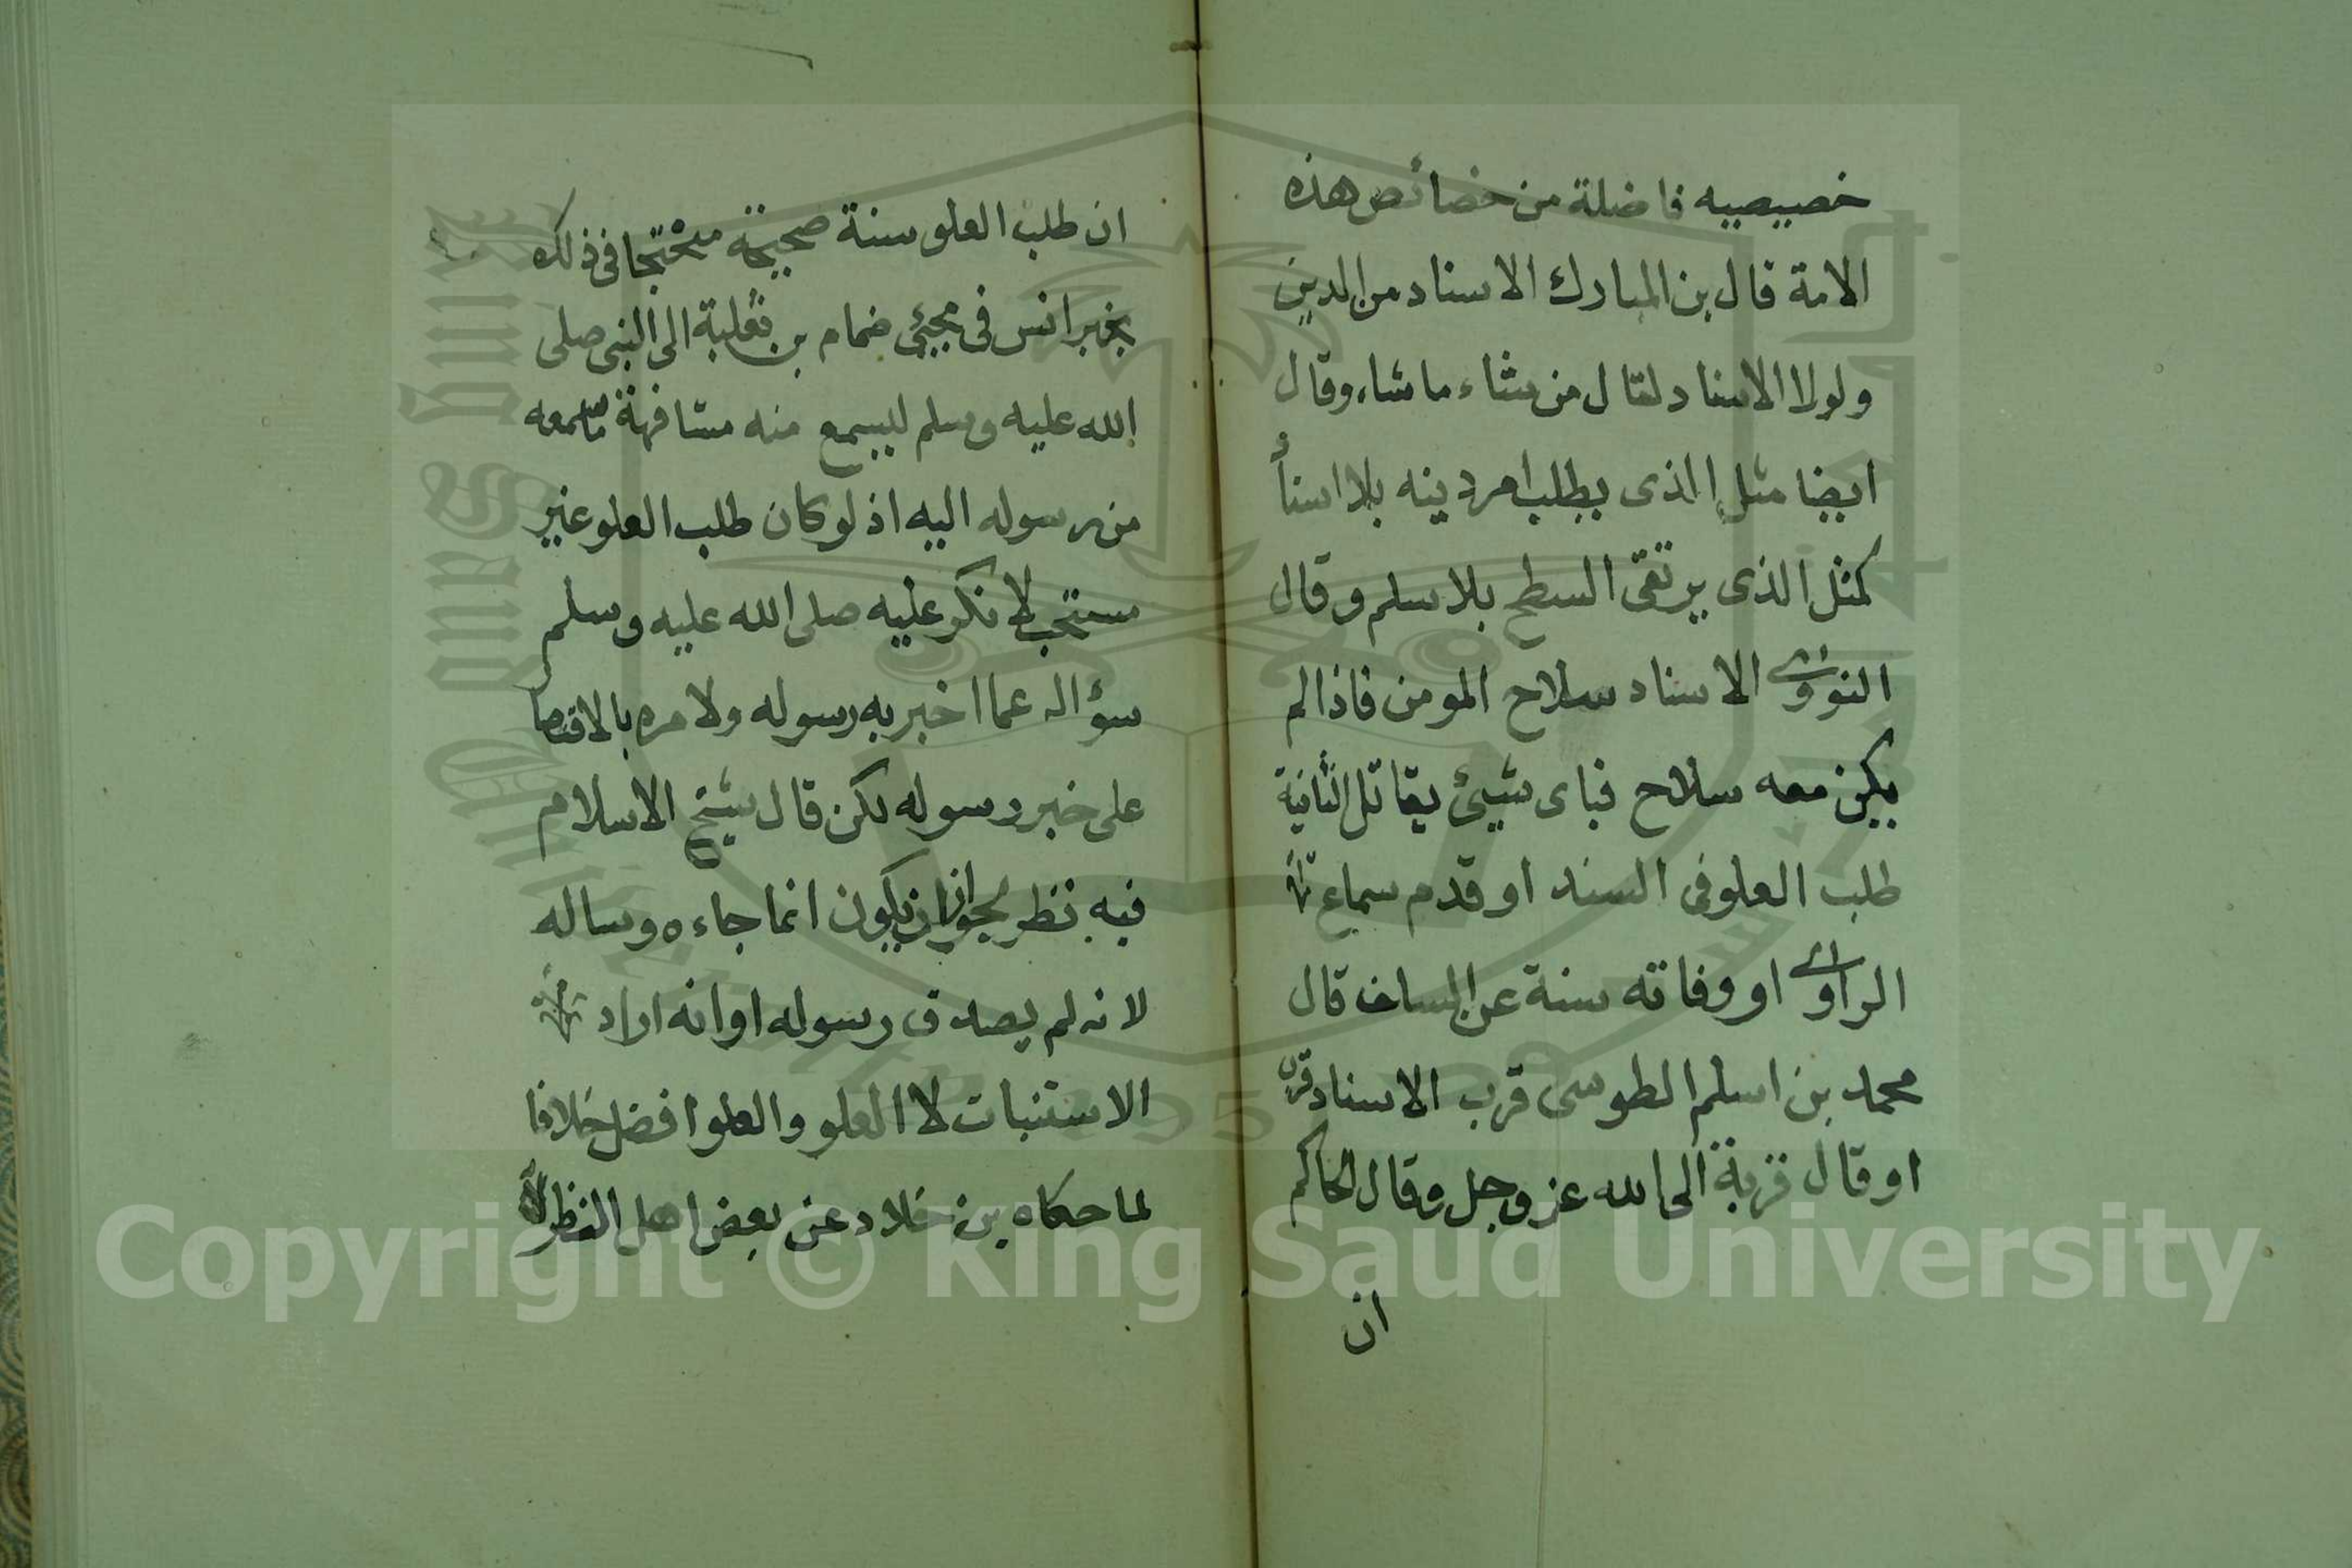 خصيصيه فاضلة من خصائص هذه
الامة قال بن المبارك الاسناد من الدين
ولولا الاسناد لقال من شاء ما شاء وقال
ايضا مثل الذى يطلب امر دينه بلا اسناد
كمثل الذى يرتقى السطح بلا سلم وقال
النووى الاسناد سلاح المومن فاذا لم
يكن معه سلاح فباى شيئ يقاتل الثانية
طلب العلو فى السند او قدم سماع
الراوى او وفاته سنة عن السلف قال
محمد بن اسلم الطوسى قرب الاسناد قرب
او قال قربة الى الله عز وجل وقال الحاكم
ان
ان طلب العلو سنة صحيحة محتجا فى ذلك
بخبر انس فى مجيئ ضمام بن ثعلبة الى النبى صلى
الله عليه وسلم ليسمع منه مشافهة ما سمعه
من رسوله اليه اذ لو كان طلب العلو غير
مستحب لانكر عليه صلى الله عليه وسلم
سؤاله عما اخبر به رسوله ولامره بالاقتصا
على خبر رسوله لكن قال شيخ الاسلام
فيه نظر لجواز ان يكون انما جاءه وساله
لانه لم يصدق رسوله او انه اراد
الاستثبات لا العلو والعلو افضل خلافا
لما حكاه بن خلاد عن بعض اهل النظر
Copyright © King Saud University